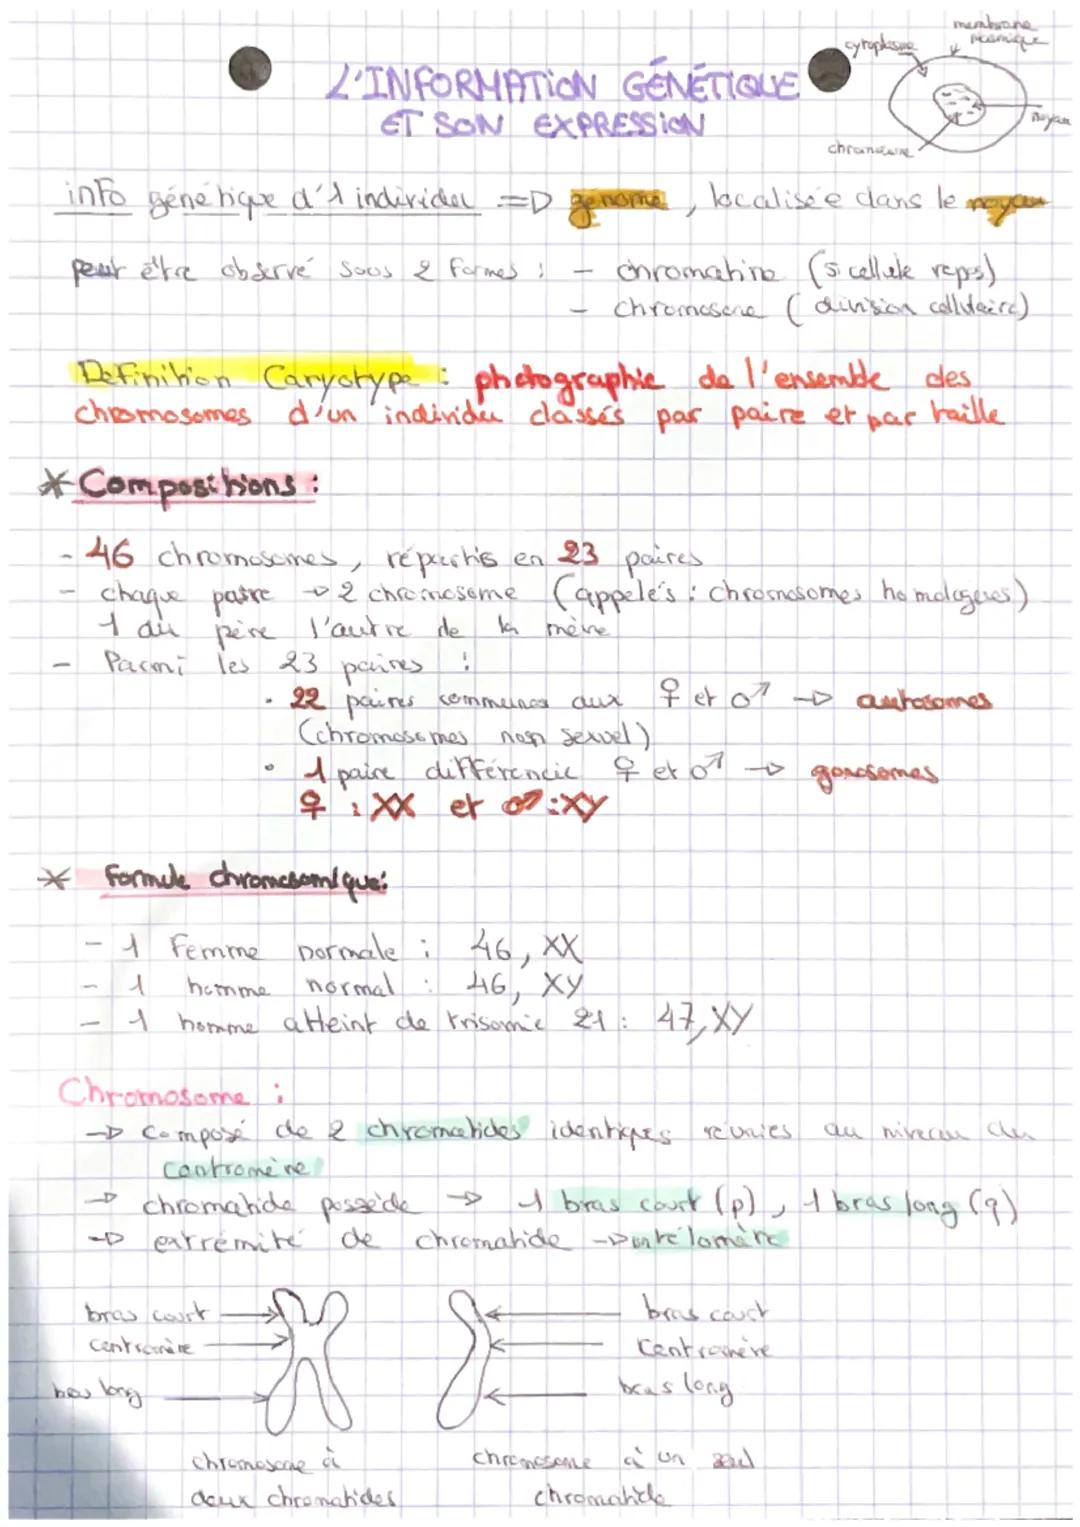 membrane
plasmique
cytoplasme
noyau
chromosome
L'INFORMATION GÉNÉTIQUE
ET SON EXPRESSION
info génétique d'1 individu => génome, localisée dans le noyau
peut être observé sous 2 formes : - chromatine (si cellule repos)
- chromosome (division cellulaire)
Definition Caryotype : photographie de l'ensemble des
chromosomes d'un individu classés par paire et par taille
* Compositions :
- 46 chromosomes, répartis en 23 paires
- chaque paire → 2 chromosome (appelés : chromosomes homologues)
1 du père l'autre de la mère
- Parmi les 23 paires :
• 22 paires communes aux ♀ et ♂ → autosomes
(chromosomes non sexuel)
• 1 paire différencie ♀ et ♂ → gonosomes
♀ : XX et ♂ : XY
* Formule chromosomique :
- 1 Femme normale : 46, XX
- 1 homme normal : 46, XY
- 1 homme atteint de trisomie 21 : 47, XY
Chromosome :
→ Composé de 2 chromatides identiques réunies au niveau du
centromère
→ chromatide possède → 1 bras court (p), 1 bras long (q)
→ extrémité de chromatide → télomère
bras court
centromère
bras long
bras court
Centromère
bras long
chromosome à
deux chromatides
chromosome à un seul
chromatide